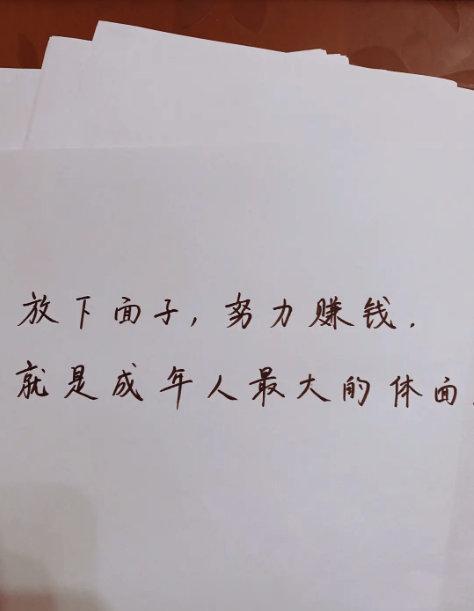 放下面子,努力赚钱.
就是成年人最大的体面.